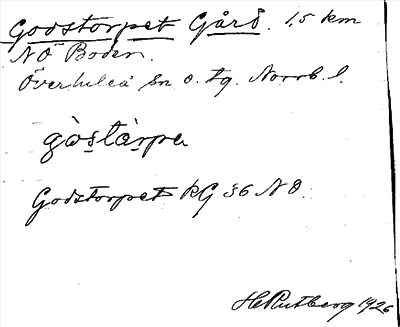 Godstorpet Gård. 1,5 km
NÖ Boden.
Överluleå sn o. tg. Norrb. l.
gòstàrpa
Godstorpet kG 36 NO.
H Rutberg 1926